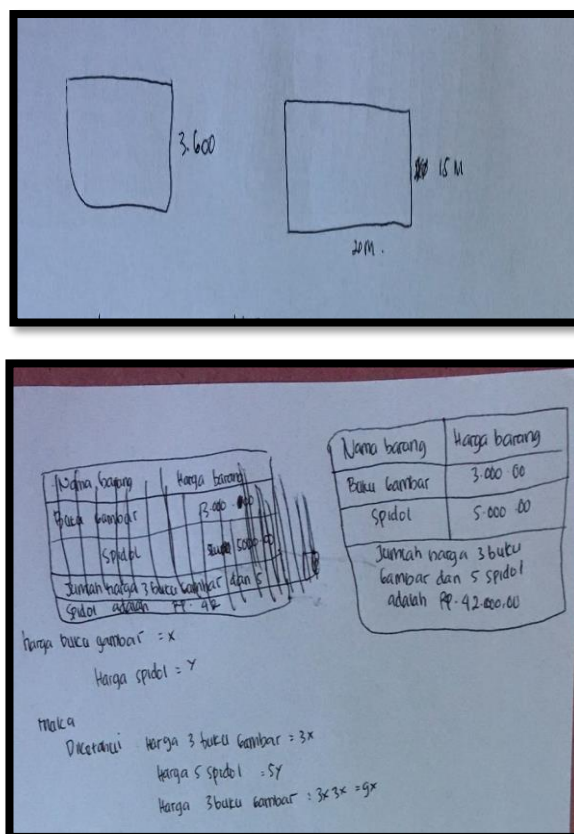 3.600
15 M
20M.
Nama barang
Harga barang
Buku Gambar
3.000.00
Spidol
5000.00
Jumlah harga 3 buku Gambar dan 5
Spidol adalah RP. 42
Nama barang
Harga barang
Buku Gambar
3.000.00
Spidol
5.000.00
Jumlah harga 3 buku
Gambar dan 5 spidol
adalah RP. 42.000,00
harga buku gambar = x
Harga spidol = y
maka
Diketahui Harga 3 buku Gambar = 3x
Harga 5 spidol = 5y
Harga 3 buku Gambar = 3x3x = 9x